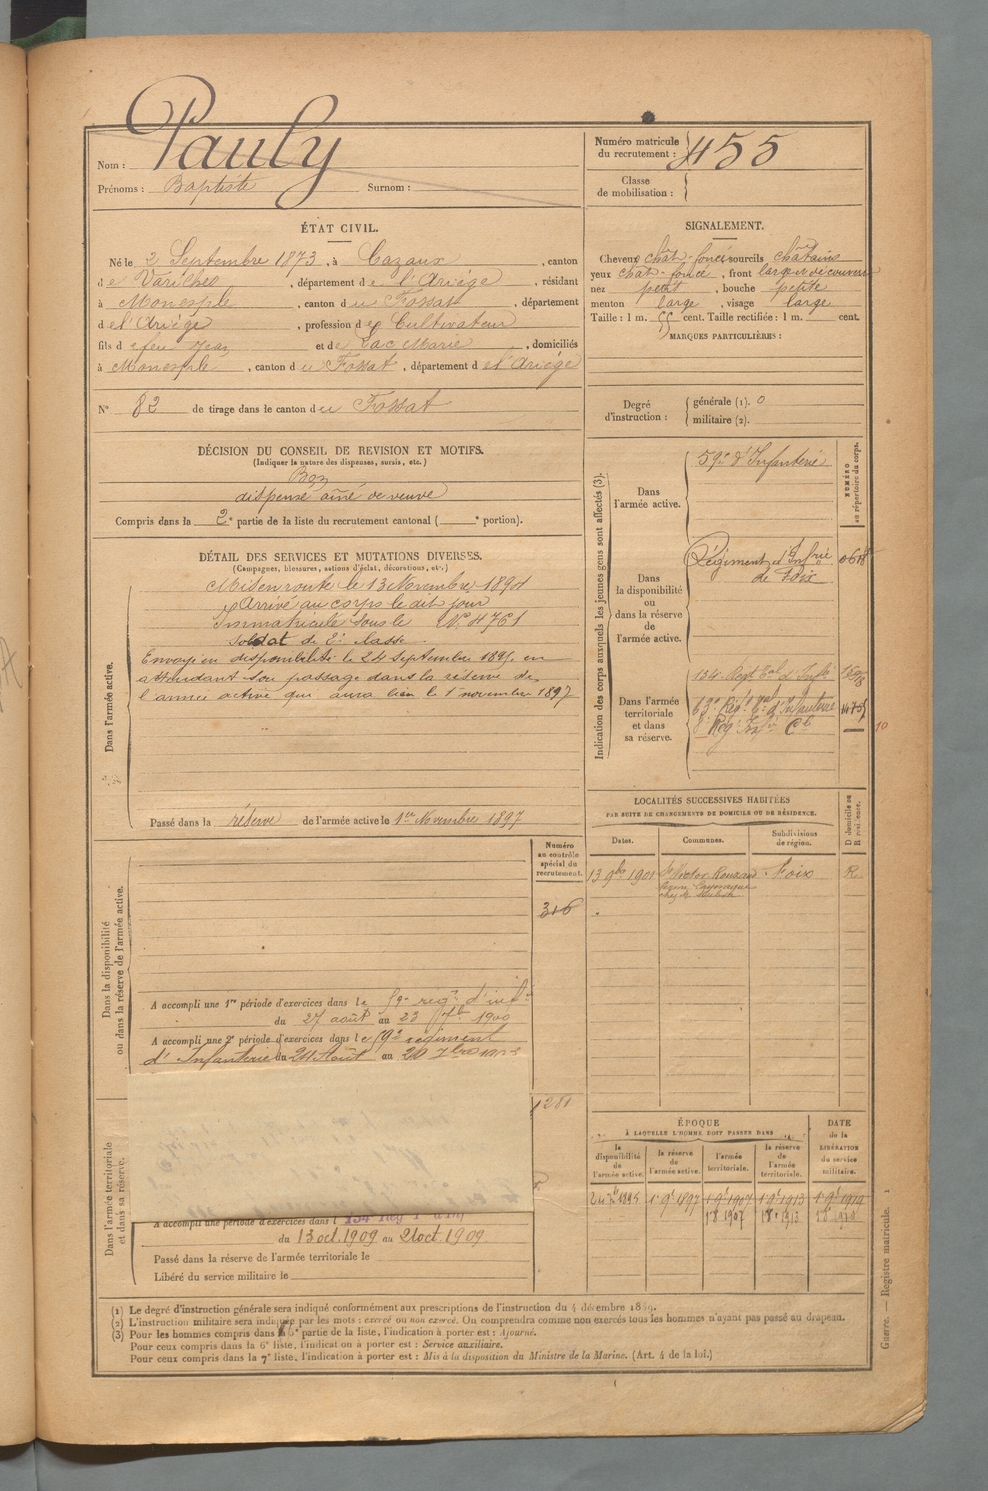 Nom : Pauly
Prénoms : Baptiste Surnom :
Numéro matricule du recrutement : 455
Classe de mobilisation :
ÉTAT CIVIL.
Né le 2 Septembre 1873, à Cazaux, canton
de Varilhes, département de l'Ariége, résidant
à Monesple, canton du Fossat, département
de l'Ariége, profession de Cultivateur
fils de feu Jean et de Lac Marie, domiciliés
à Monesple, canton du Fossat, département de l'Ariége
N° 82 de tirage dans le canton du Fossat
SIGNALEMENT.
Cheveux chat-foncé sourcils châtains
yeux chat-foncé, front largeur découvert
nez petit, bouche petite
menton large, visage large
Taille : 1 m. 55 cent. Taille rectifiée : 1 m. cent.
MARQUES PARTICULIÈRES :
Degré d'instruction : générale (1). 0
militaire (2).
DÉCISION DU CONSEIL DE REVISION ET MOTIFS.
(Indiquer la nature des dispenses, sursis, etc.)
Bon
dispensé aîné de veuve
Compris dans la 2e partie de la liste du recrutement cantonal ( e portion).
DÉTAIL DES SERVICES ET MUTATIONS DIVERSES.
(Campagnes, blessures, actions d'éclat, décorations, etc.)
Dans l'armée active.
Mis en route le 13 Novembre 1894
Arrivé au corps le dit jour
Immatriculé sous le N° 4761
Soldat de 2e classe
Envoyé en disponibilité le 24 septembre 1895 en
attendant son passage dans la réserve de
l'armée active qui aura lieu le 1 novembre 1897
Passé dans la réserve de l'armée active le 1er Novembre 1897
Indication des corps auxquels les jeunes gens sont affectés (3).
NUMÉRO au répertoire du corps.
Dans l'armée active.
59e d'Infanterie
Dans la disponibilité ou dans la réserve de l'armée active.
Régiment d'Infrie
de Foix
Dans l'armée territoriale et dans sa réserve.
134 Regt Eal d'Infie
63e Régt Eal d'Infanterie
10
LOCALITÉS SUCCESSIVES HABITÉES
PAR SUITE DE CHANGEMENTS DE DOMICILE OU DE RÉSIDENCE.
Dates. Communes. Subdivisions de région. D domicile ou R résidence.
13 9bre 1901 St Victor Rouzaud Foix R
Numéro au contrôle spécial du recrutement.
316
1281
Dans la disponibilité ou dans la réserve de l'armée active.
A accompli une 1re période d'exercices dans le 59e régt d'inf
du 27 août au 23 7bre 1900
A accompli une 2e période d'exercices dans le 59e régiment
d'Infanterie du 24 Août au 20 7bre
Dans l'armée territoriale et dans sa réserve.
A accompli une période d'exercices dans l 134 Reg
du 13 oct. 1909 au 21 oct. 1909
Passé dans la réserve de l'armée territoriale le
Libéré du service militaire le
ÉPOQUE
À LAQUELLE L'HOMME DOIT PASSER DANS
la disponibilité de l'armée active. la réserve de l'armée active. l'armée territoriale. la réserve de l'armée territoriale.
DATE de la LIBÉRATION du service militaire.
24 7b 1895 1 9b 1897 1 9b 1907 1 9b 1913 1 9b 1919
1 8 1907 1 8 1913 1 8 1919
(1) Le degré d'instruction générale sera indiqué conformément aux prescriptions de l'instruction du 4 décembre 1889.
(2) L'instruction militaire sera indiquée par les mots : exercé ou non exercé. On comprendra comme non exercés tous les hommes n'ayant pas passé au drapeau.
(3) Pour les hommes compris dans la 6e partie de la liste, l'indication à porter est : Ajourné.
Pour ceux compris dans la 6e liste, l'indication à porter est : Service auxiliaire.
Pour ceux compris dans la 7e liste, l'indication à porter est : Mis à la disposition du Ministre de la Marine. (Art. 4 de la loi.)
Guerre. — Registre matricule. 1